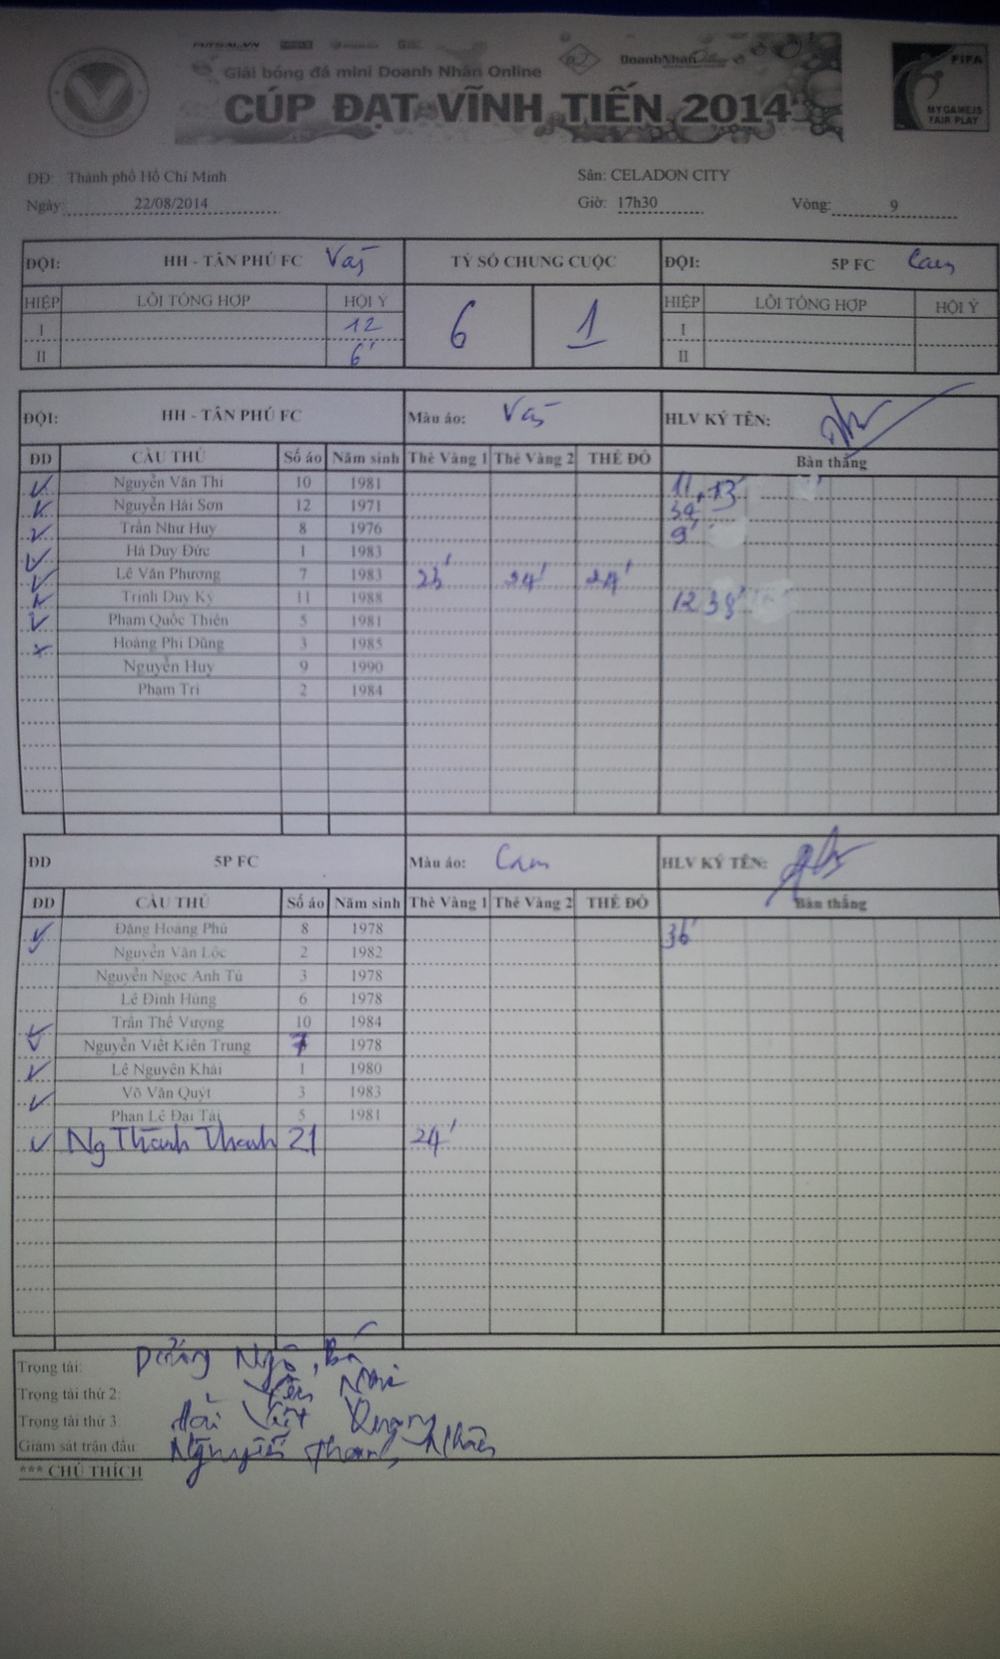 Giải bóng đá mini Doanh Nhân Online
CÚP ĐẠT VĨNH TIẾN 2014
FIFA
MY GAME IS
FAIR PLAY
ĐĐ: Thành phố Hồ Chí Minh Sân: CELADON CITY
Ngày: 22/08/2014 Giờ: 17h30 Vòng: 9
ĐỘI: HH - TÂN PHÚ FC TỶ SỐ CHUNG CUỘC ĐỘI: 5P FC Cam
HIỆP LỖI TỔNG HỢP HỘI Ý 6 1 HIỆP LỖI TỔNG HỢP HỘI Ý
I 12 I
II 6' II
ĐỘI: HH - TÂN PHÚ FC Màu áo: HLV KÝ TÊN:
DD CẦU THỦ Số áo Năm sinh Thẻ Vàng 1 Thẻ Vàng 2 THẺ ĐỎ Bàn thắng
Nguyễn Văn Thi 10 1981 11, 13'
Nguyễn Hải Sơn 12 1971 34'
Trần Như Huy 8 1976 9'
Hà Duy Đức 1 1983
Lê Văn Phương 7 1983 23' 24' 24'
Trịnh Duy Kỳ 11 1988 12 38'
Phạm Quốc Thiên 5 1981
Hoàng Phi Dũng 3 1985
Nguyễn Huy 9 1990
Phạm Trí 2 1984
ĐD 5P FC Màu áo: Cam HLV KÝ TÊN:
DD CẦU THỦ Số áo Năm sinh Thẻ Vàng 1 Thẻ Vàng 2 THẺ ĐỎ Bàn thắng
Đặng Hoàng Phú 8 1978 36'
Nguyễn Văn Lộc 2 1982
Nguyễn Ngọc Anh Tú 3 1978
Lê Đình Hùng 6 1978
Trần Thế Vượng 10 1984
Nguyễn Việt Kiên Trung 7 1978
Lê Nguyên Khải 1 1980
Võ Văn Quýt 3 1983
Phan Lê Đại Tài 5 1981
Ng Thành Thanh 21 24'
Trọng tài:
Trọng tài thứ 2:
Trọng tài thứ 3
Giám sát trận đấu:
*** CHÚ THÍCH